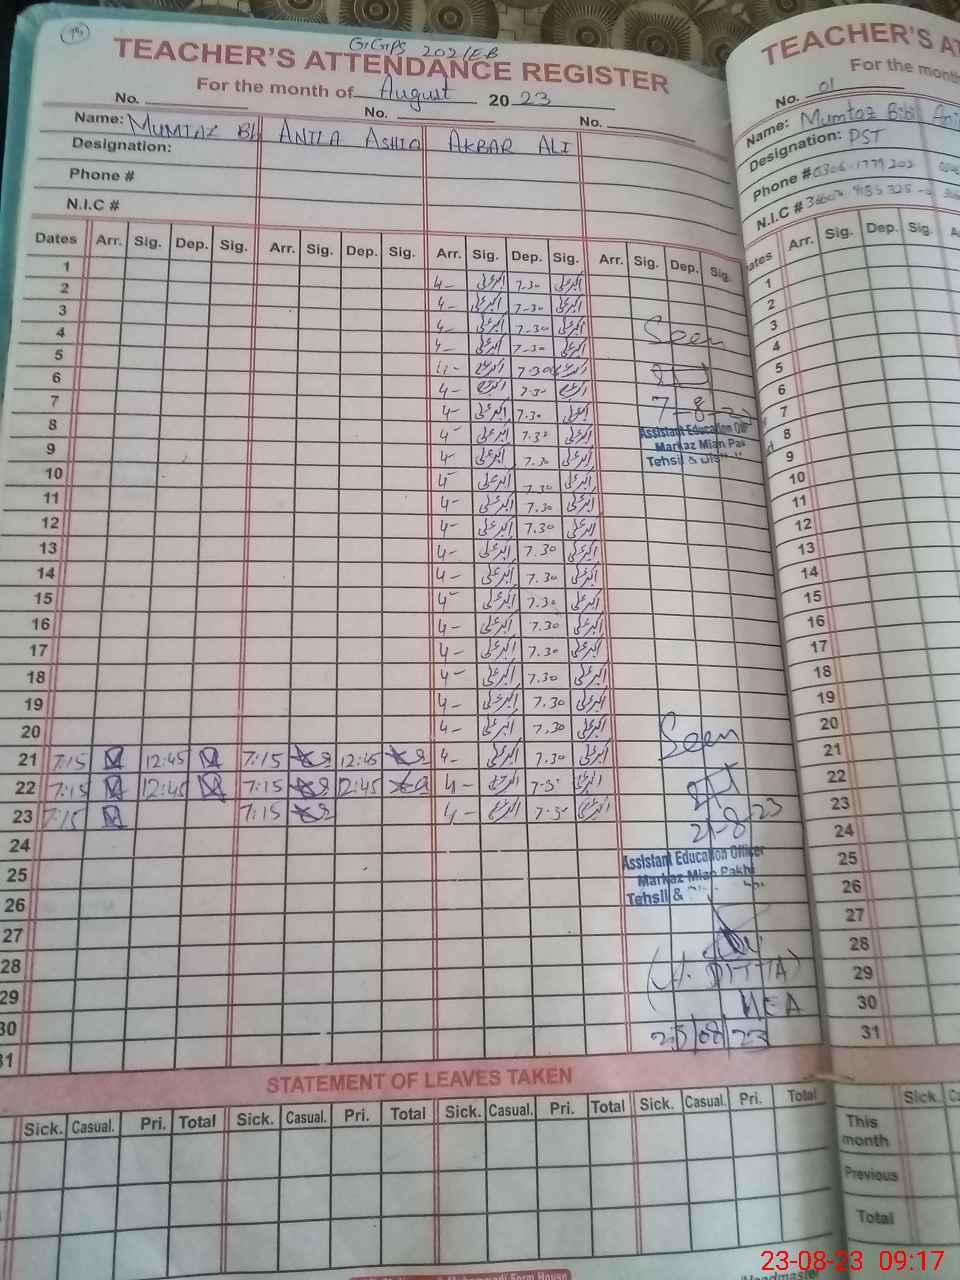 GGPS 202/EB
TEACHER'S ATTENDANCE REGISTER
For the month of August 2023
No. No. No.
Name: MUMTAZ Bi ANILA ASHIQ AKBAR ALI
Designation:
Phone #
N.I.C #
Dates Arr. Sig. Dep. Sig. Arr. Sig. Dep. Sig. Arr. Sig. Dep. Sig. Arr. Sig. Dep. Sig.
1
2 4- اکبر علی 7.30 اکبر علی
3 4- اکبر علی 7-30 اکبر علی
4 4- اکبر علی 7.30 اکبر علی
5 4- اکبر علی 7-30 اکبر علی
6 4- اکبر علی 7-30 اکبر علی
7 4- اکبر علی 7-30 اکبر علی
8 4- اکبر علی 7.30 اکبر علی
9 4- اکبر علی 7.30 اکبر علی
10 4- اکبر علی 7.30 اکبر علی
11 4- اکبر علی 7.30 اکبر علی
12 4- اکبر علی 7.30 اکبر علی
13 4- اکبر علی 7.30 اکبر علی
14 4- اکبر علی 7.30 اکبر علی
15 4- اکبر علی 7.30 اکبر علی
16 4- اکبر علی 7.30 اکبر علی
17 4- اکبر علی 7.30 اکبر علی
18 4- اکبر علی 7.30 اکبر علی
19 4- اکبر علی 7.30 اکبر علی
20 4- اکبر علی 7.30 اکبر علی
21 7:15 12:45 7:15 12:45 4- اکبر علی 7.30 اکبر علی
22 7:15 12:45 7:15 12:45 4- اکبر علی 7-30 اکبر علی
23 7:15 7:15 4- اکبر علی 7-30 اکبر علی
24
25
26
27
28
29
30
31
Seen
7-8-23
Assistant Education
Markaz Mian Pak
Tehsil &
Seen
21-8-23
Assistant Education Officer
Markaz Mian Pakhi
Tehsil &
DITTA)
MEA
23/08/23
STATEMENT OF LEAVES TAKEN
Sick. Casual. Pri. Total Sick. Casual. Pri. Total Sick. Casual. Pri. Total Sick. Casual. Pri. Total
TEACHER'S AT
For the month
No. 01
Name: Mumtaz Bibi Ani
Designation: PST
Phone #
N.I.C #
ates Arr. Sig. Dep. Sig.
1
2
3
4
5
6
7
8
9
10
11
12
13
14
15
16
17
18
19
20
21
22
23
24
25
26
27
28
29
30
31
Sick.
This
month
Previous
Total
Form House
23-08-23 09:17